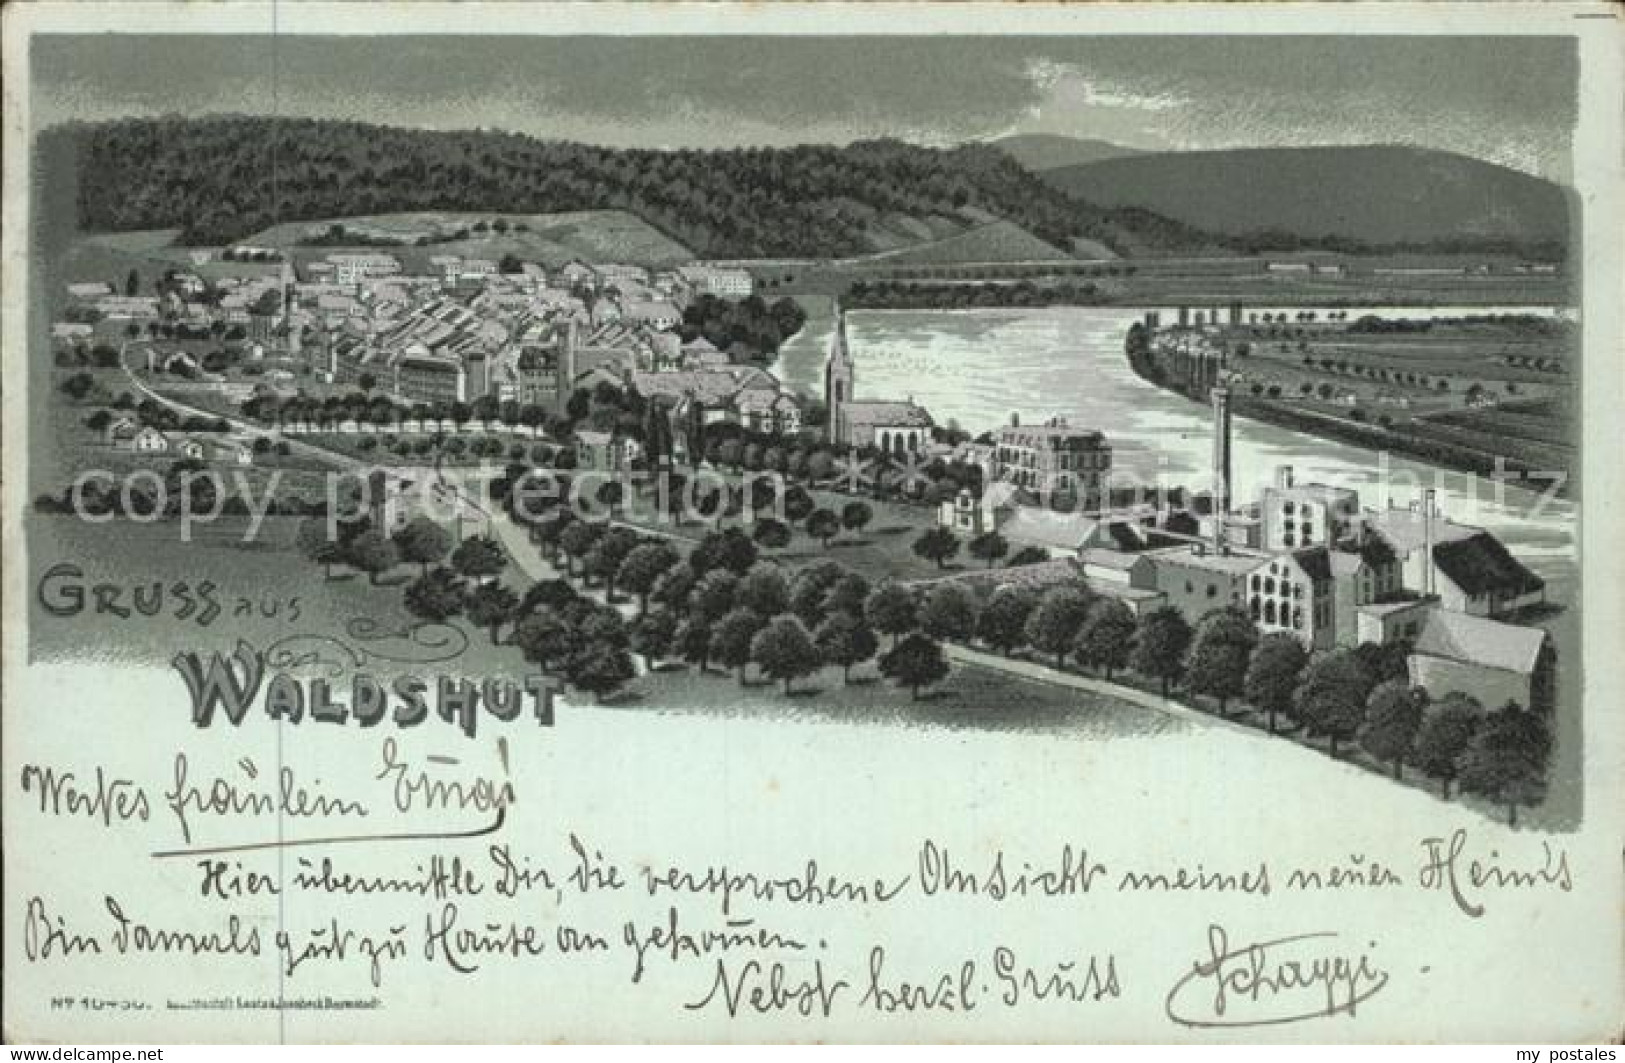 GRUSS AUS
WALDSHUT
copy protection ** copie schutz
Wertes fräulein Emma!
Hier übermittle Dir, die versprochene Ansicht meines neuen Heim's
Bin damals gut zu Hause an gekommen.
Nebst herzl. Gruss Schaggi.
No 10430.
delcampe.net
my_postales